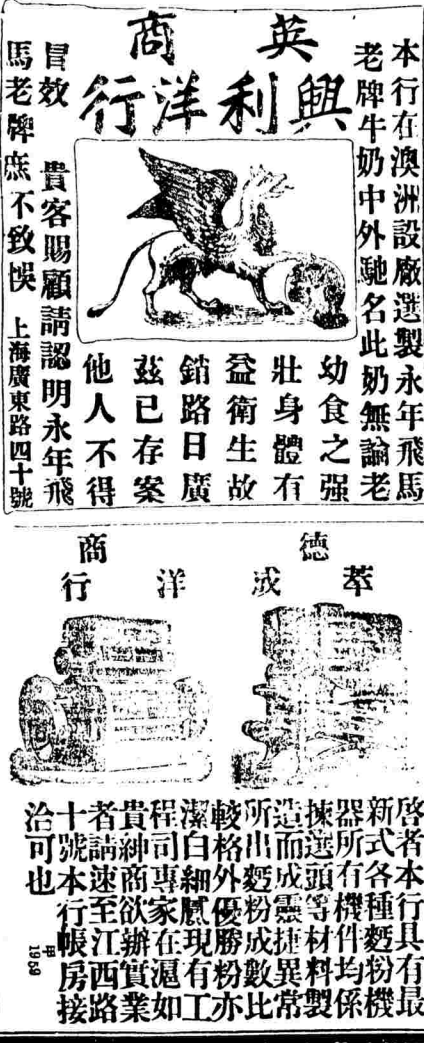 英商
興利洋行
本行在澳洲設廠選製永年飛馬
老牌牛奶中外馳名此奶無論老
幼食之强
壯身體有
益衛生故
銷路日廣
茲已存案
他人不得
冒效 貴客賜顧請認明永年飛
馬老牌庶不致悞 上海廣東路四十號
德商
萃成洋行
啓者本行具有最
新式各種麫粉機
器所有機件均係
揀選頭等材料製
造而成靈捷異常
所出麫粉成數比
較格外優勝粉亦
潔白細膩現有工
程司專家在滬如
貴紳商欲辦實業
者請速至江西路
十號本行帳房接
洽可也
甲 1959